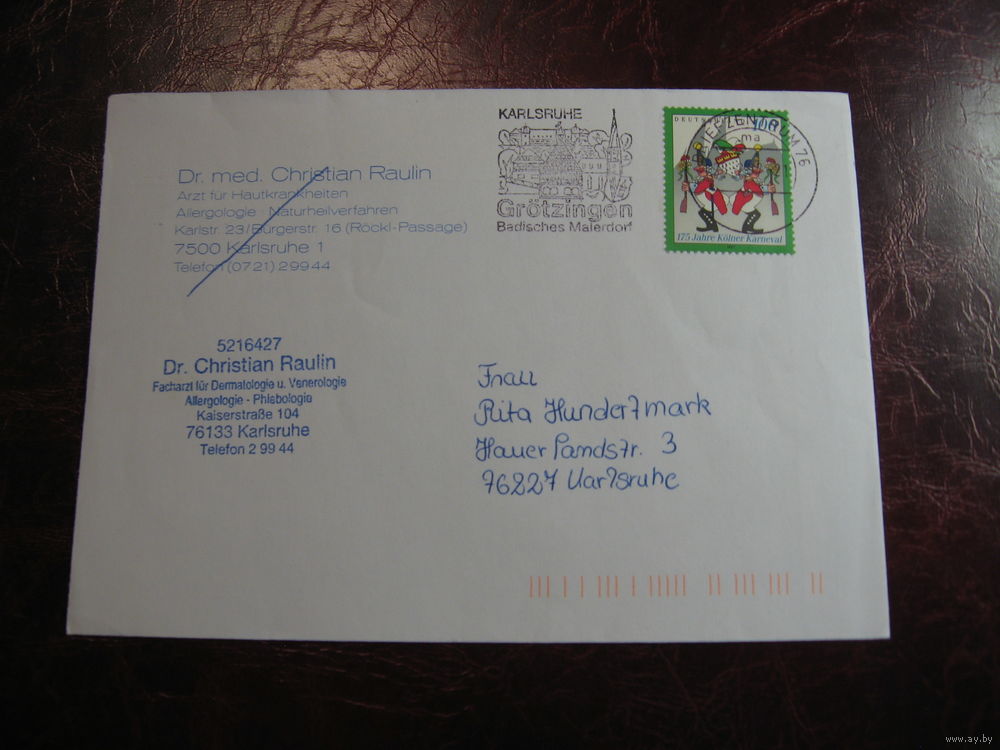 KARLSRUHE
Grötzingen
Badisches Malerdorf
DEUTSCH
100
BRIEFZENTRUM 76
ma
175 Jahre Kölner Karneval
Dr. med. Christian Raulin
Arzt für Hautkrankheiten
Allergologie · Naturheilverfahren
Karlstr. 23/Bürgerstr. 16 (Röckl-Passage)
7500 Karlsruhe 1
Telefon (0721) 29944
5216427
Dr. Christian Raulin
Facharzt für Dermatologie u. Venerologie
Allergologie - Phlebologie
Kaiserstraße 104
76133 Karlsruhe
Telefon 2 99 44
Frau
Rita Hundertmark
Hauer Pandstr. 3
76227 Karlsruhe
www.ay.by